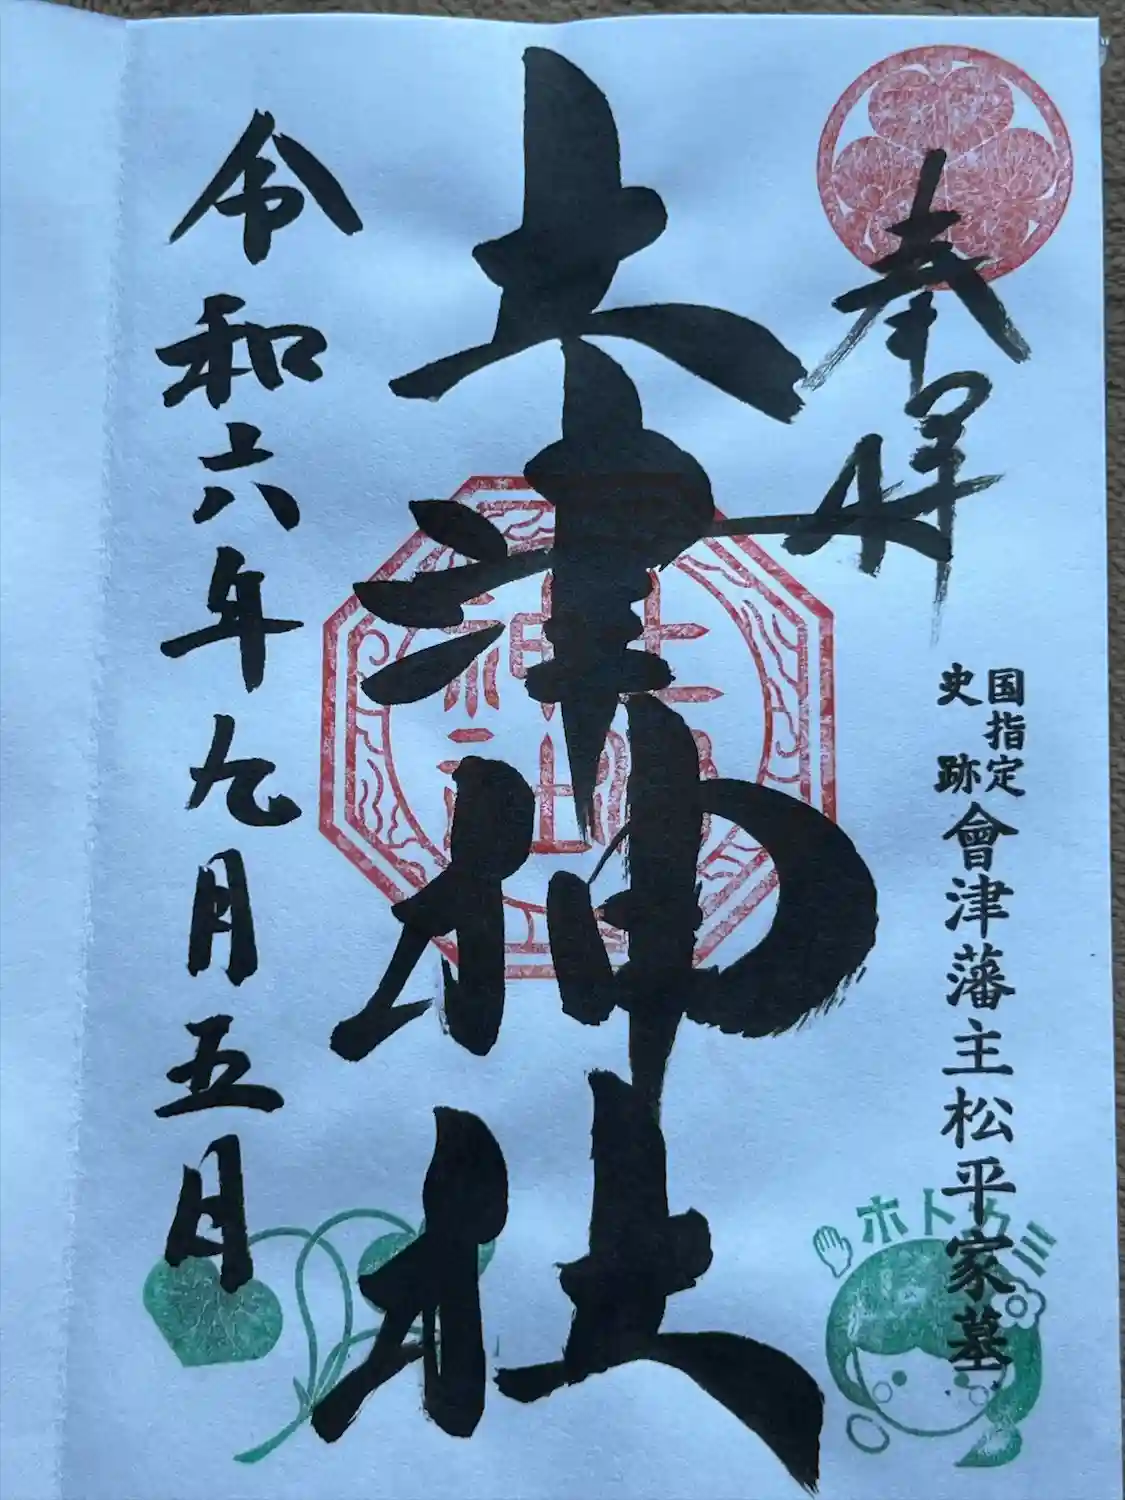 奉拝
国指定
史跡
會津藩主松平家墓
土津神社
令和六年九月五日
土津
神社
ホトカミ